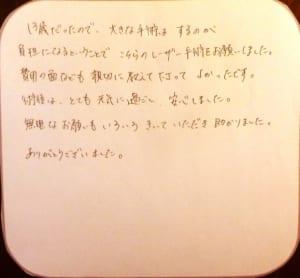 13歳だったので、大きな手術は するのが
負担になるということで こちらのレーザー手術をお願いしました。
費用の面なども 親切に教えて下さって よかったです。
術後は、とても 元気に過ごし 安心しました。
無理なお願いも いろいろ きいて いただき 助かりました。
ありがとうございました。